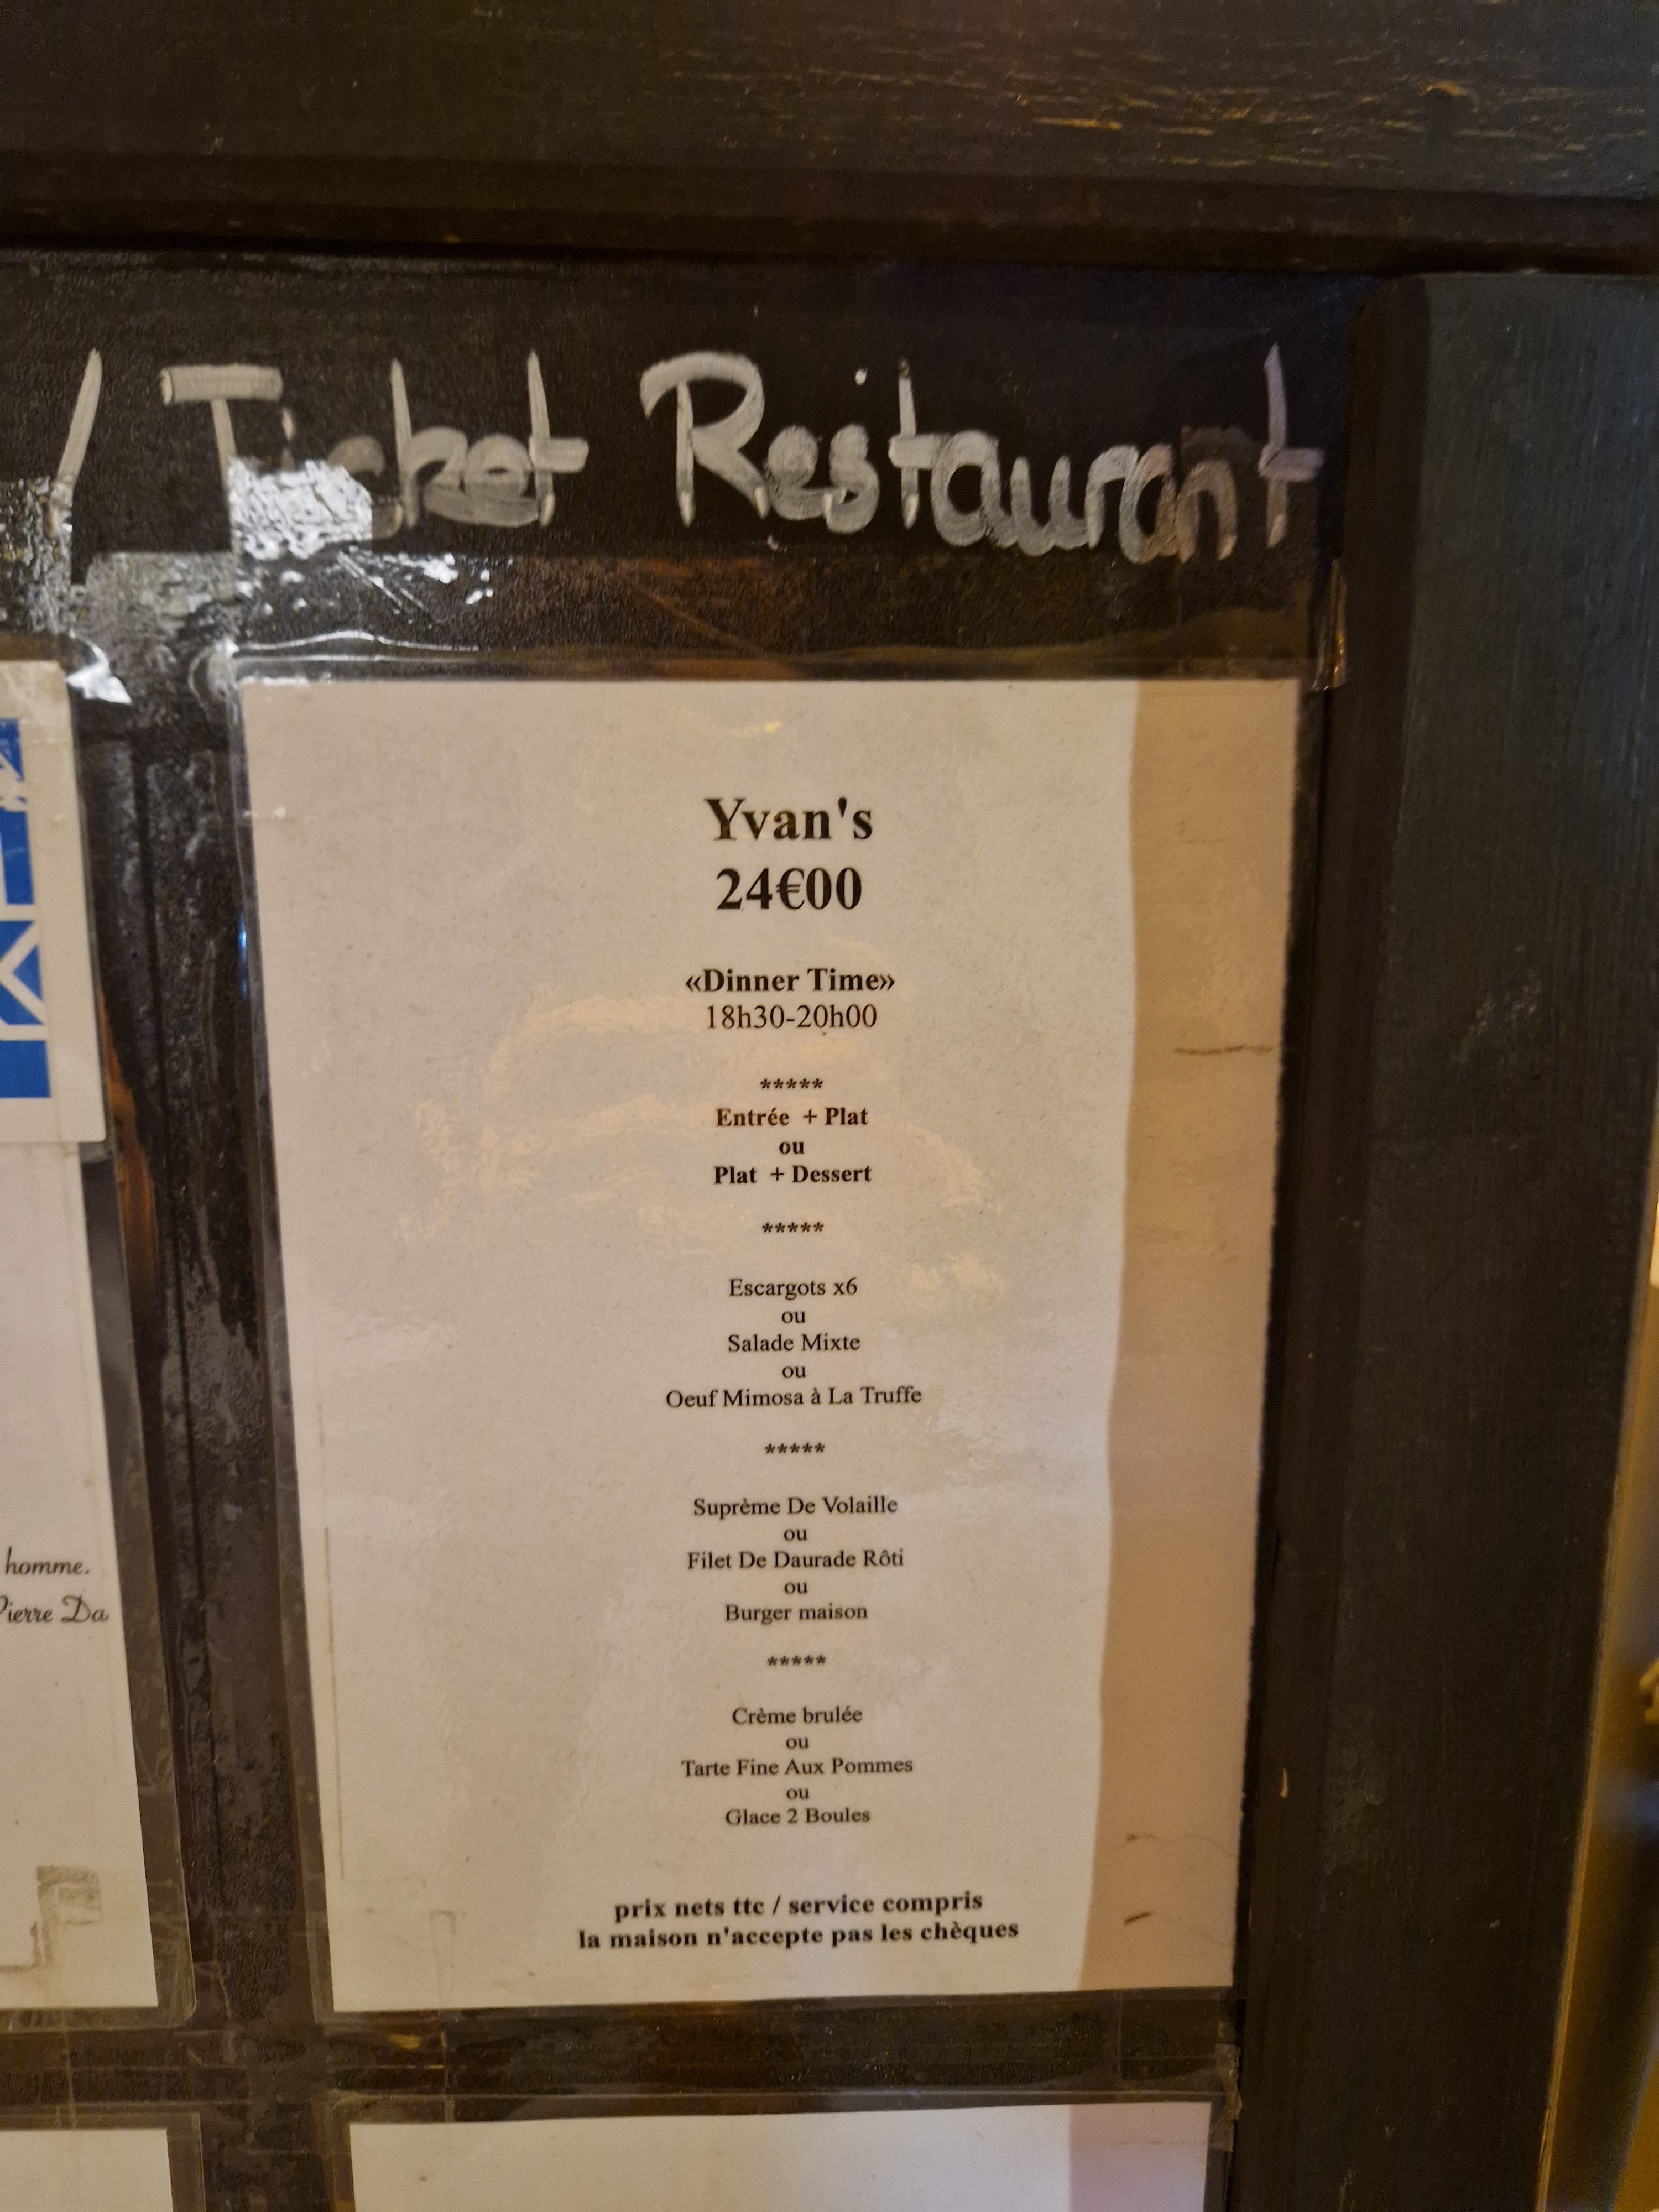 / Ticket Restaurant
Yvan's
24€00
«Dinner Time»
18h30-20h00
*****
Entrée + Plat
ou
Plat + Dessert
*****
Escargots x6
ou
Salade Mixte
ou
Oeuf Mimosa à La Truffe
*****
Suprème De Volaille
ou
Filet De Daurade Rôti
ou
Burger maison
*****
Crème brulée
ou
Tarte Fine Aux Pommes
ou
Glace 2 Boules
prix nets ttc / service compris
la maison n'accepte pas les chèques
homme.
Pierre Da